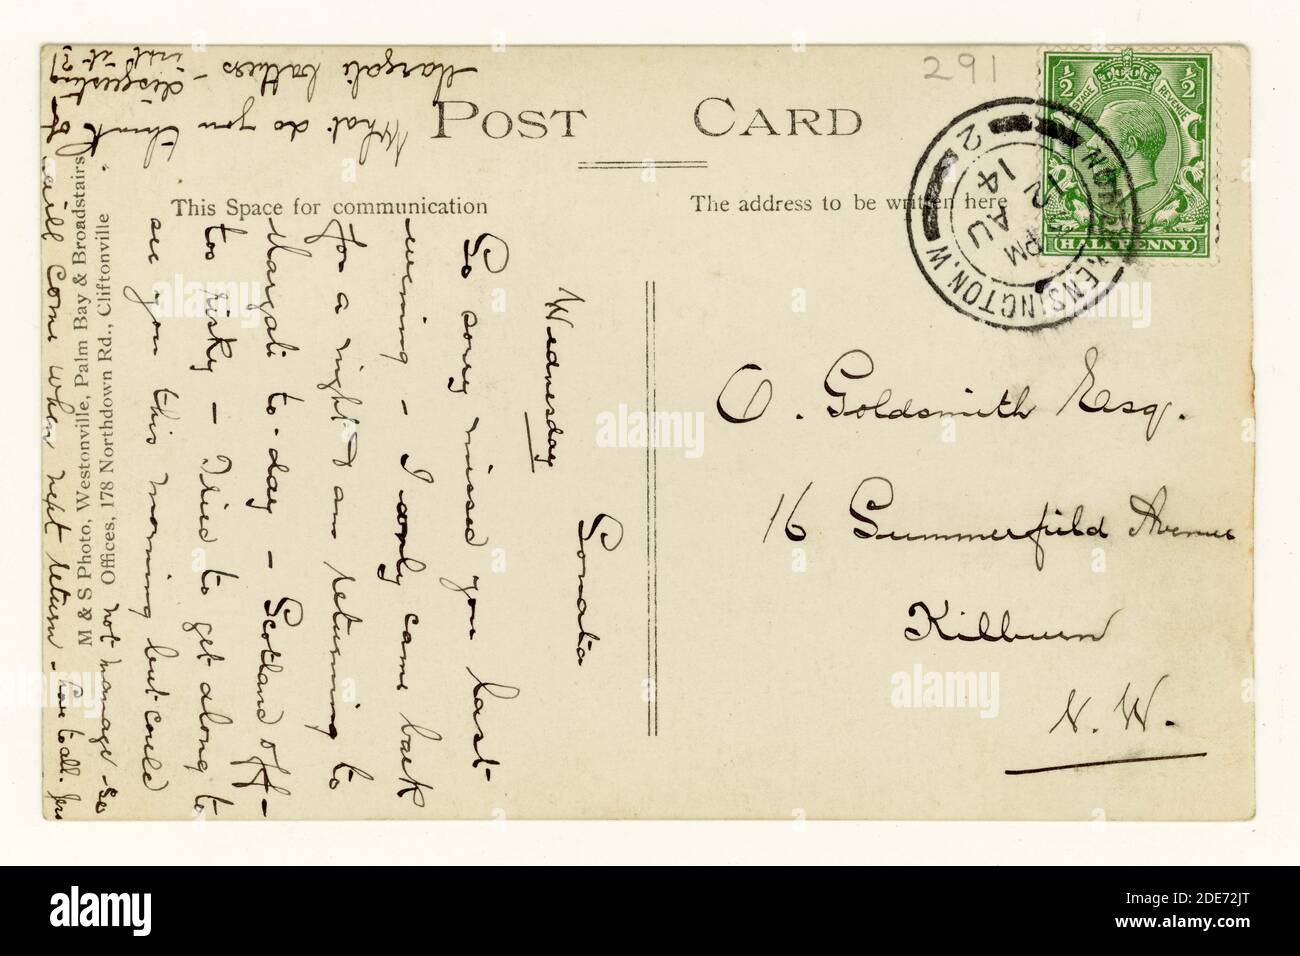 291
POST CARD
This Space for communication
The address to be written here
M & S Photo, Westonville, Palm Bay & Broadstairs
Offices, 178 Northdown Rd., Cliftonville
½ ½
POSTAGE REVENUE
HALFPENNY
KENSINGTON.W
2
PM
12 AU
14
O. Goldsmith Esq.
16 Summerfield Avenue
Kilburn
N.W.
Sonata
Wednesday
So sorry missed you last
evening - I only came back
for a night & am returning to
Margate to-day - Scotland off -
too risky - Tried to get along to
see you this morning but could
not manage - so
will come when next return - love to all.
What do you think of
Margate bathers - disgusting
isnt it ?!
alamy
Image ID: 2DE72JT
www.alamy.com